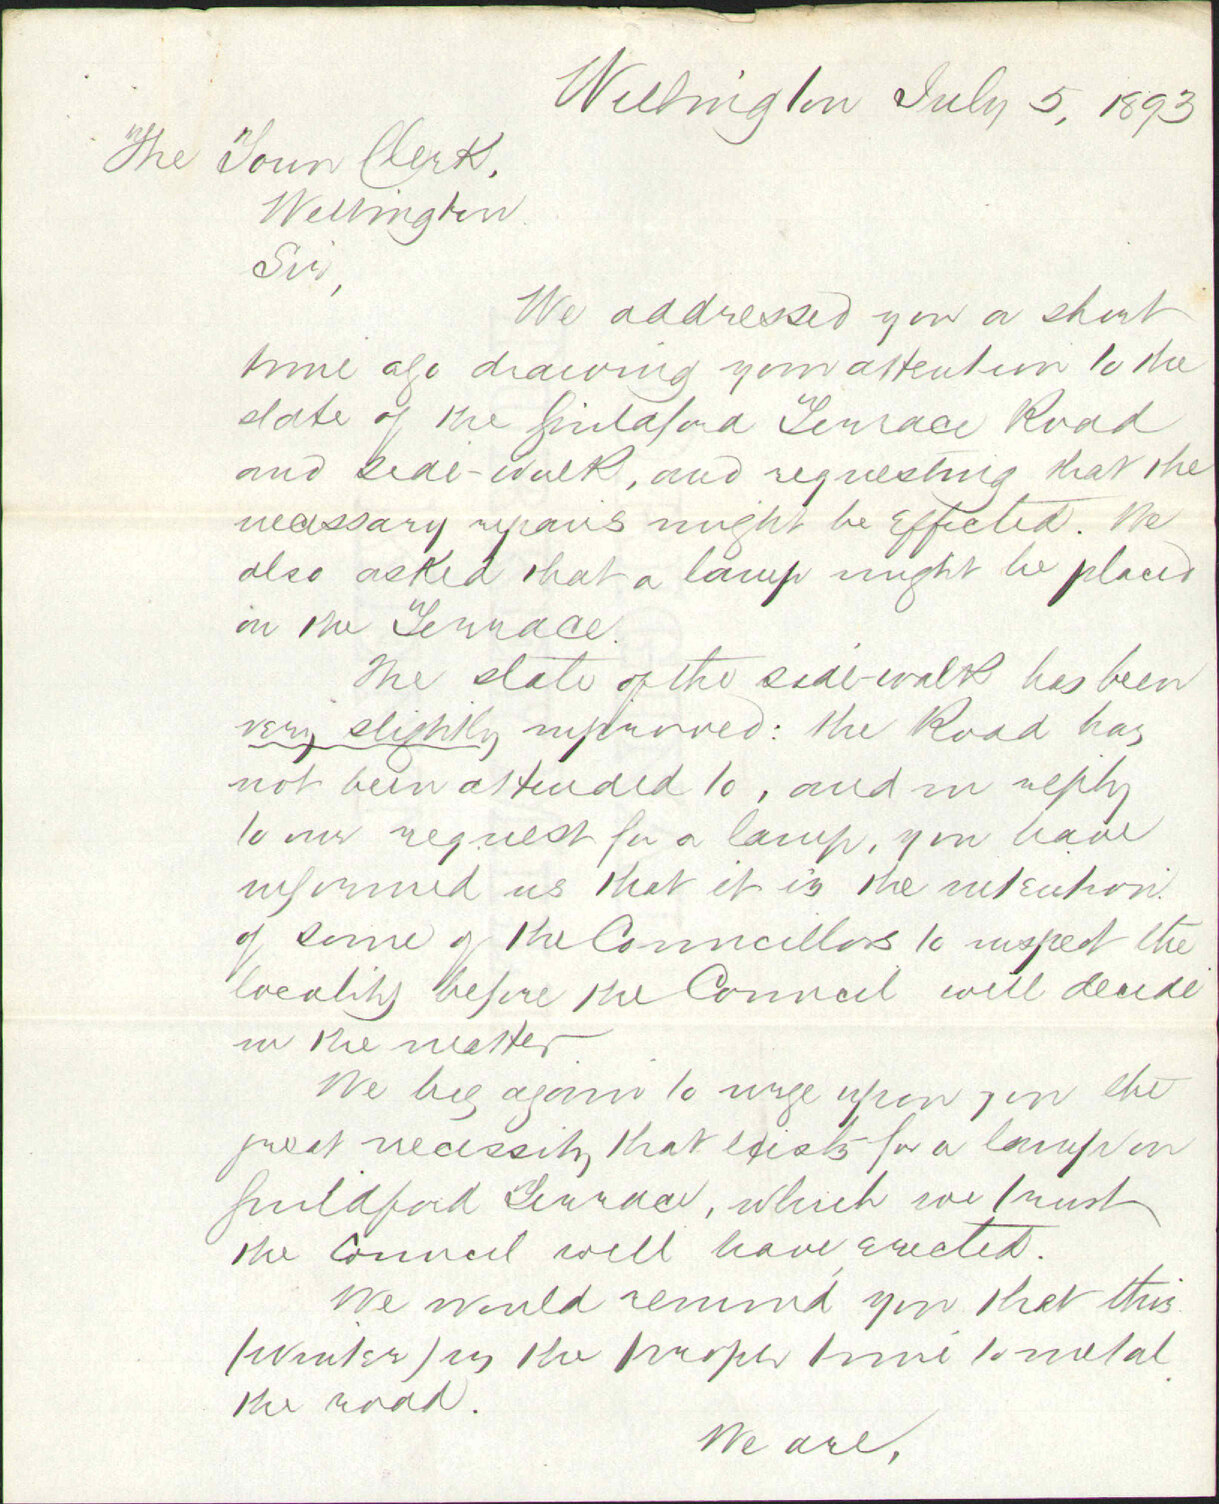 Wellington July 5, 1893
The Town Clerk,
Wellington
Sir,
We addressed you a short
time ago drawing your attention to the
state of the Guildford Terrace Road
and side-walk, and requesting that the
necessary repairs might be effected. We
also asked that a lamp might be placed
in the Terrace.
The state of the side-walk has been
very slightly improved: the Road has
not been attended to, and in reply
to our request for a lamp, you have
informed us that it is the intention
of some of the Councillors to inspect the
locality before the Council will decide
in the matter
We beg again to urge upon you the
great necessity that exists for a lamp in
Guildford Terrace, which we trust
the Council will have erected.
We would remind you that this
(winter) is the proper time to metal
the road.
We are,